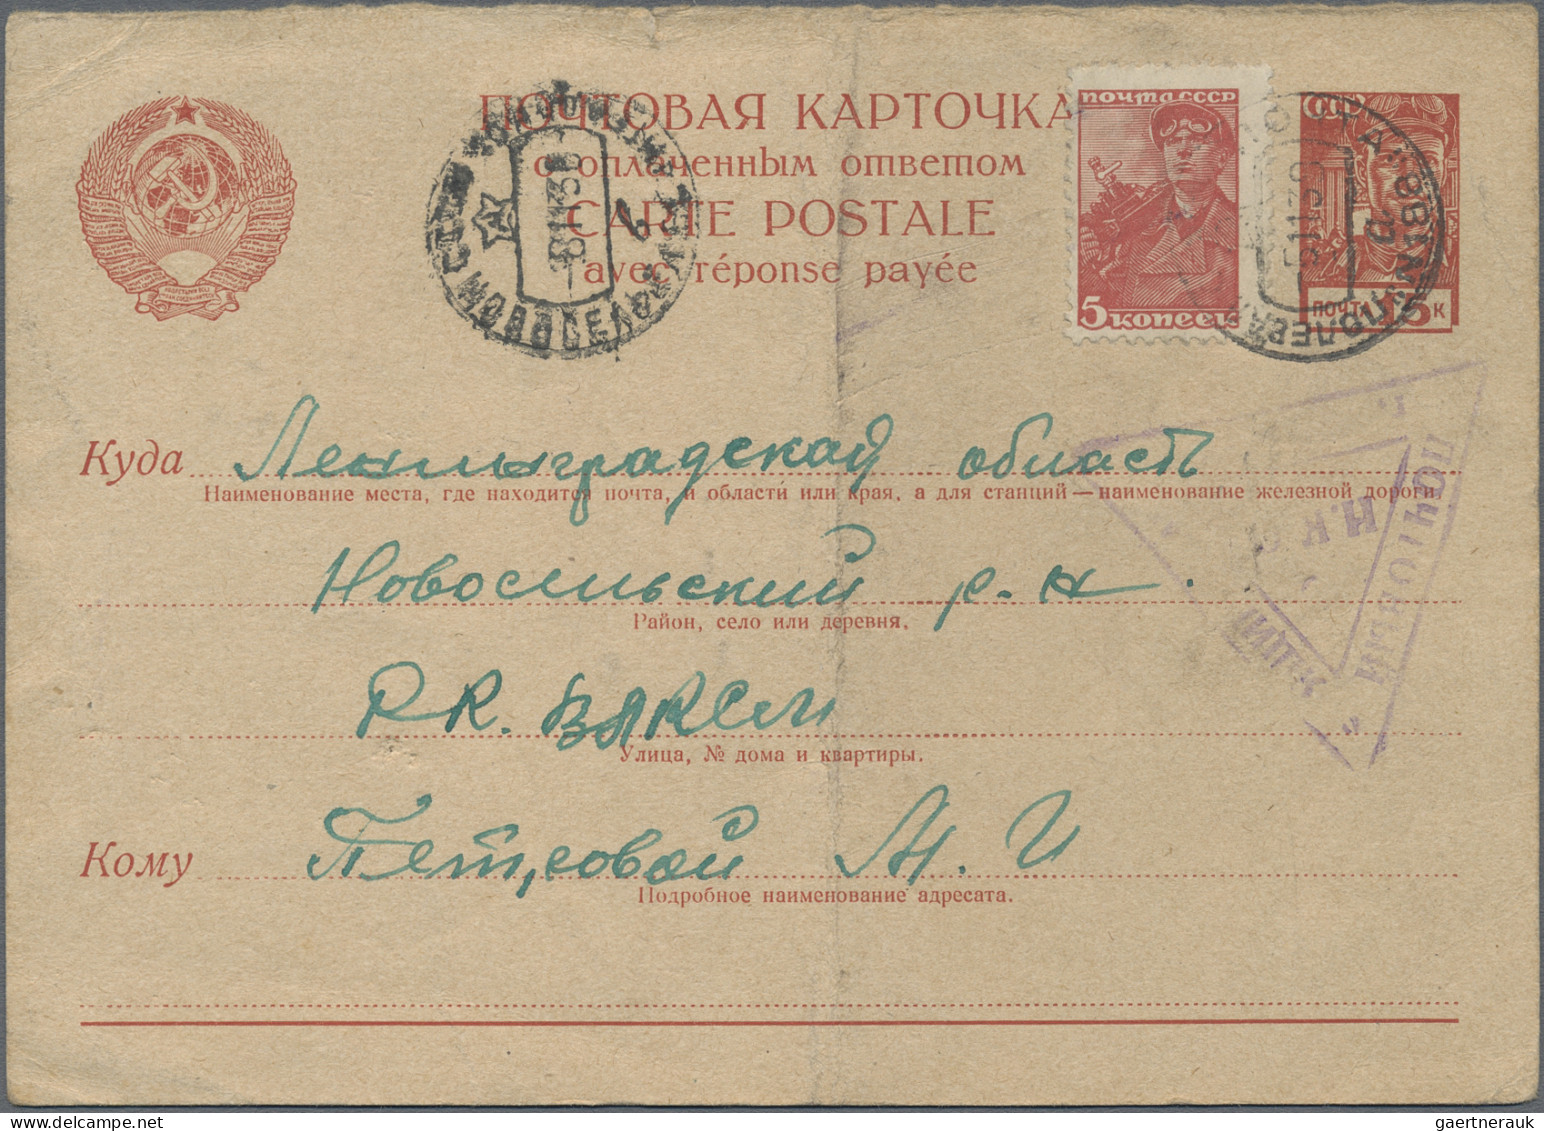 ПОЧТОВАЯ КАРТОЧКА
с оплаченным ответом
CARTE POSTALE
avec réponse payée
почта ссср
5 копеек
СССР
ПОЧТА 5 К
Куда Ленинградская область
Наименование места, где находится почта, и области или края, а для станций — наименование железной дороги
Новосельский р-н.
Район, село или деревня.
РК. ВЛКСМ
Улица, № дома и квартиры.
Кому А. И
Подробное наименование адресата.
Н.К.
gaertnerauk